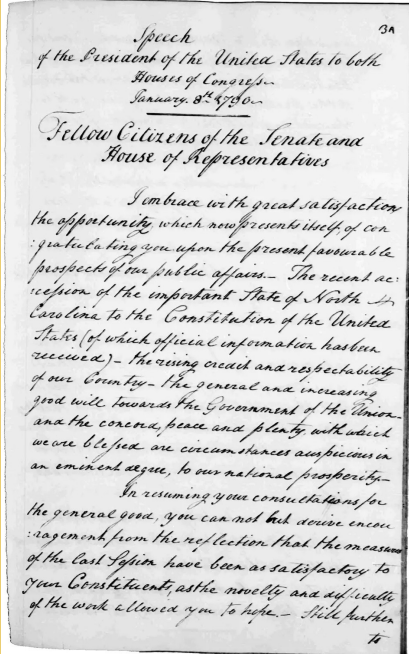 3A
Speech
of the President of the United States to both
Houses of Congress
January. 8th. 1790.
Fellow Citizens of the Senate and
House of Representatives
I embrace with great satisfaction
the opportunity, which now presents itself, of con
:gratulating you upon the present favourable
prospects of our public affairs.— The recent ac:
:cession of the important State of North
Carolina to the Constitution of the United
States (of which official information has been
received) — the rising credit and respectability
of our Country — the general and increasing
good will towards the Government of the Union—
and the concord, peace and plenty, with which
we are blessed are circumstances auspicious in
an eminent degree, to our national prosperity—
In resuming your consultations for
the general good, you can not but derive encou
:ragement from the reflection that the measures
of the last Session have been as satisfactory to
your Constituents, as the novelty and difficulty
of the work allowed you to hope — Still further
to